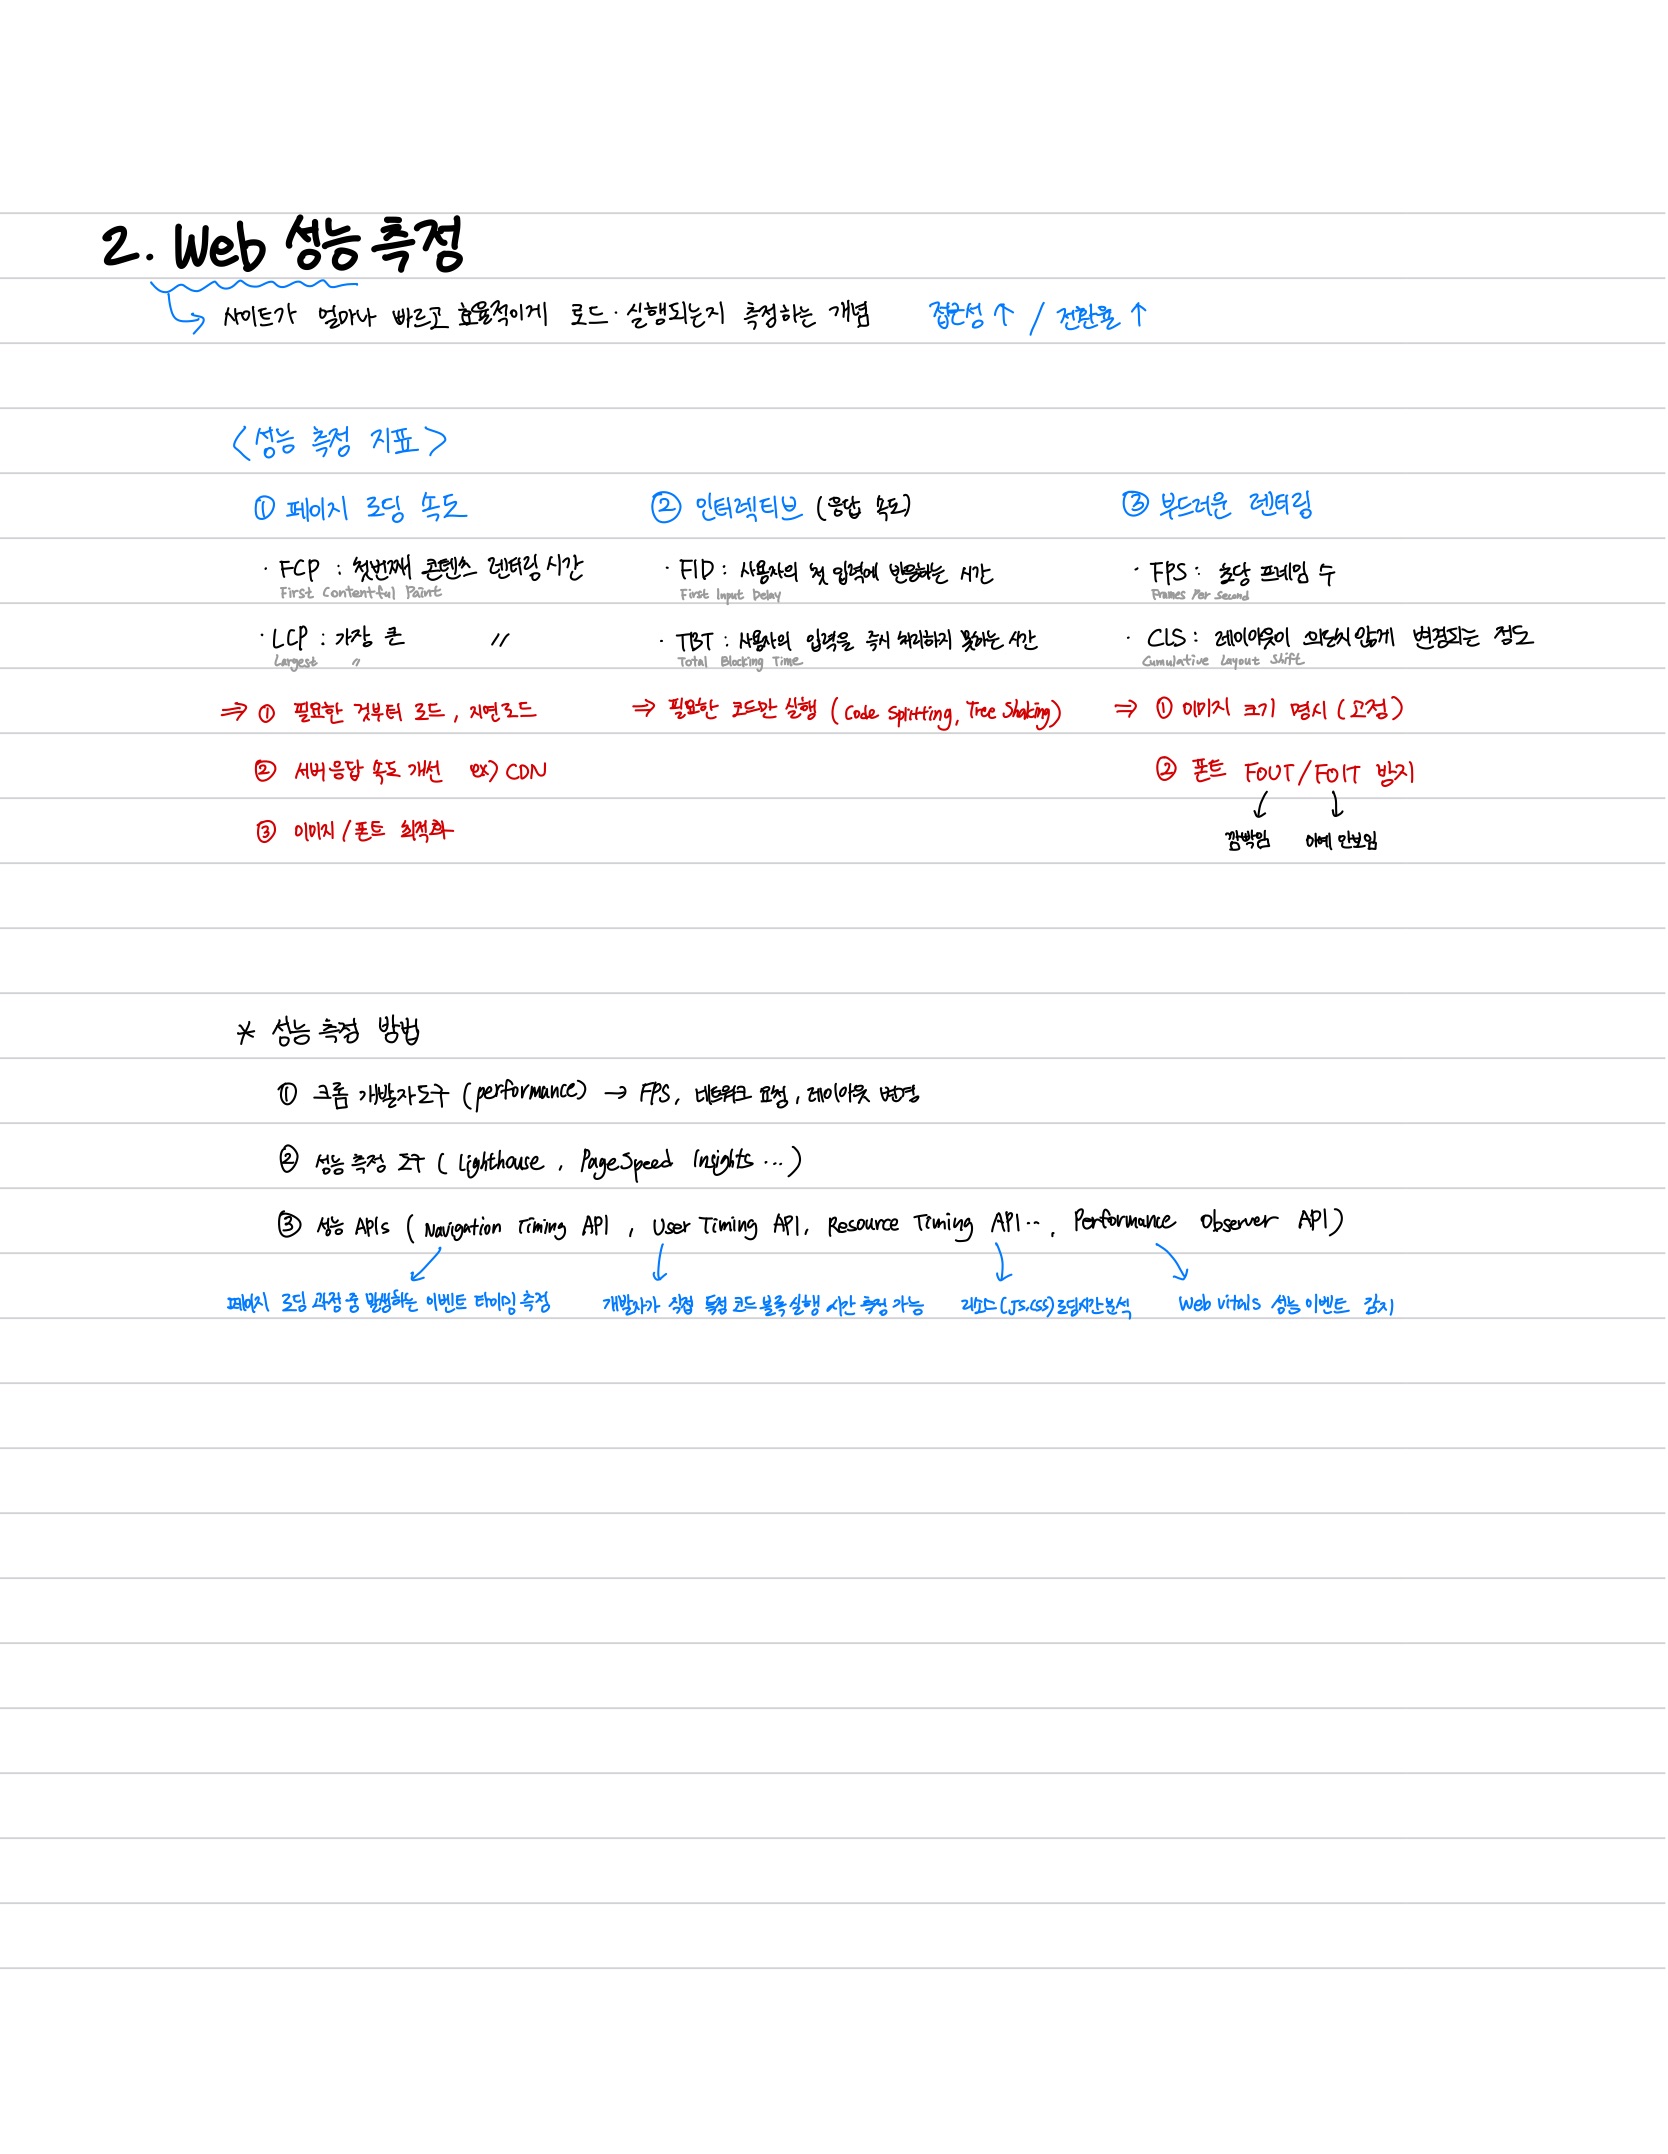 2. Web 성능 측정
사이트가 얼마나 빠르고 효율적이게 로드·실행되는지 측정하는 개념 접근성↑ / 전환율↑
<성능 측정 지표>
① 페이지 로딩 속도
· FCP : 첫번째 콘텐츠 렌더링 시간
First Contentful Paint
· LCP : 가장 큰 〃
Largest 〃
⇒ ① 필요한 것부터 로드, 지연로드
② 서버 응답 속도 개선 ex) CDN
③ 이미지 / 폰트 최적화
② 인터렉티브 (응답 속도)
· FID : 사용자의 첫 입력에 반응하는 시간
First Input Delay
· TBT : 사용자의 입력을 즉시 처리하지 못하는 시간
Total Blocking Time
⇒ 필요한 코드만 실행 (Code Splitting, Tree Shaking)
③ 부드러운 렌터링
· FPS : 초당 프레임 수
Frames Per Second
· CLS : 레이아웃이 의도치 않게 변경되는 정도
Cumulative Layout Shift
⇒ ① 이미지 크기 명시 (고정)
② 폰트 FOUT/FOIT 방지
깜빡임 아예 안보임
* 성능 측정 방법
① 크롬 개발자도구 (performance) → FPS, 네트워크 요청, 레이아웃 변경
② 성능 측정 도구 ( Lighthouse, PageSpeed Insights ...)
③ 성능 APIs ( Navigation Timing API, User Timing API, Resource Timing API.., Performance Observer API)
페이지 로딩 과정 중 발생하는 이벤트 타이밍 측정 개발자가 직접 특정 코드 블록 실행 시간 측정 가능 리소스 (JS.CSS) 로딩시간 분석 Web vitals 성능 이벤트 감지